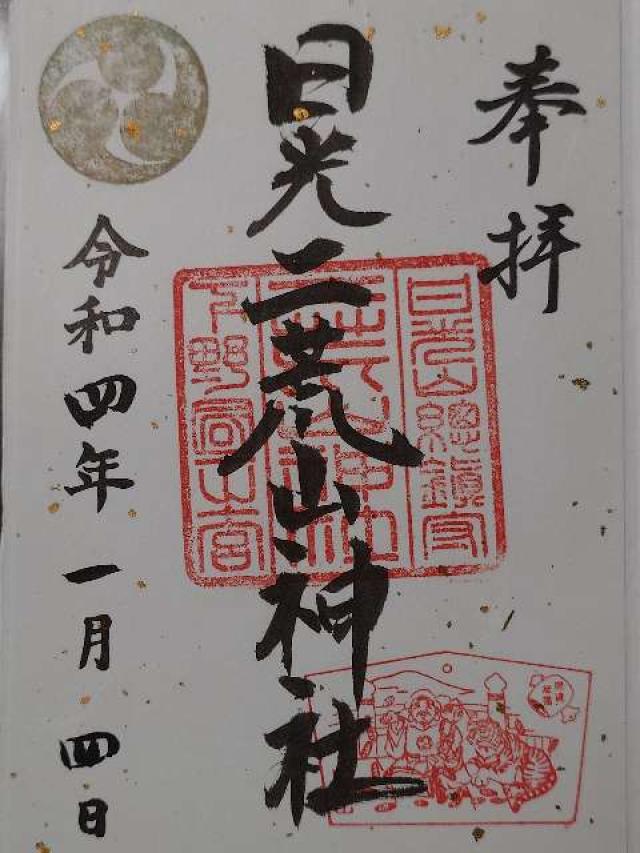 奉拝
日光二荒山神社
令和四年一月四日
日光山總鎮守
二荒山神社
下野國一之宮